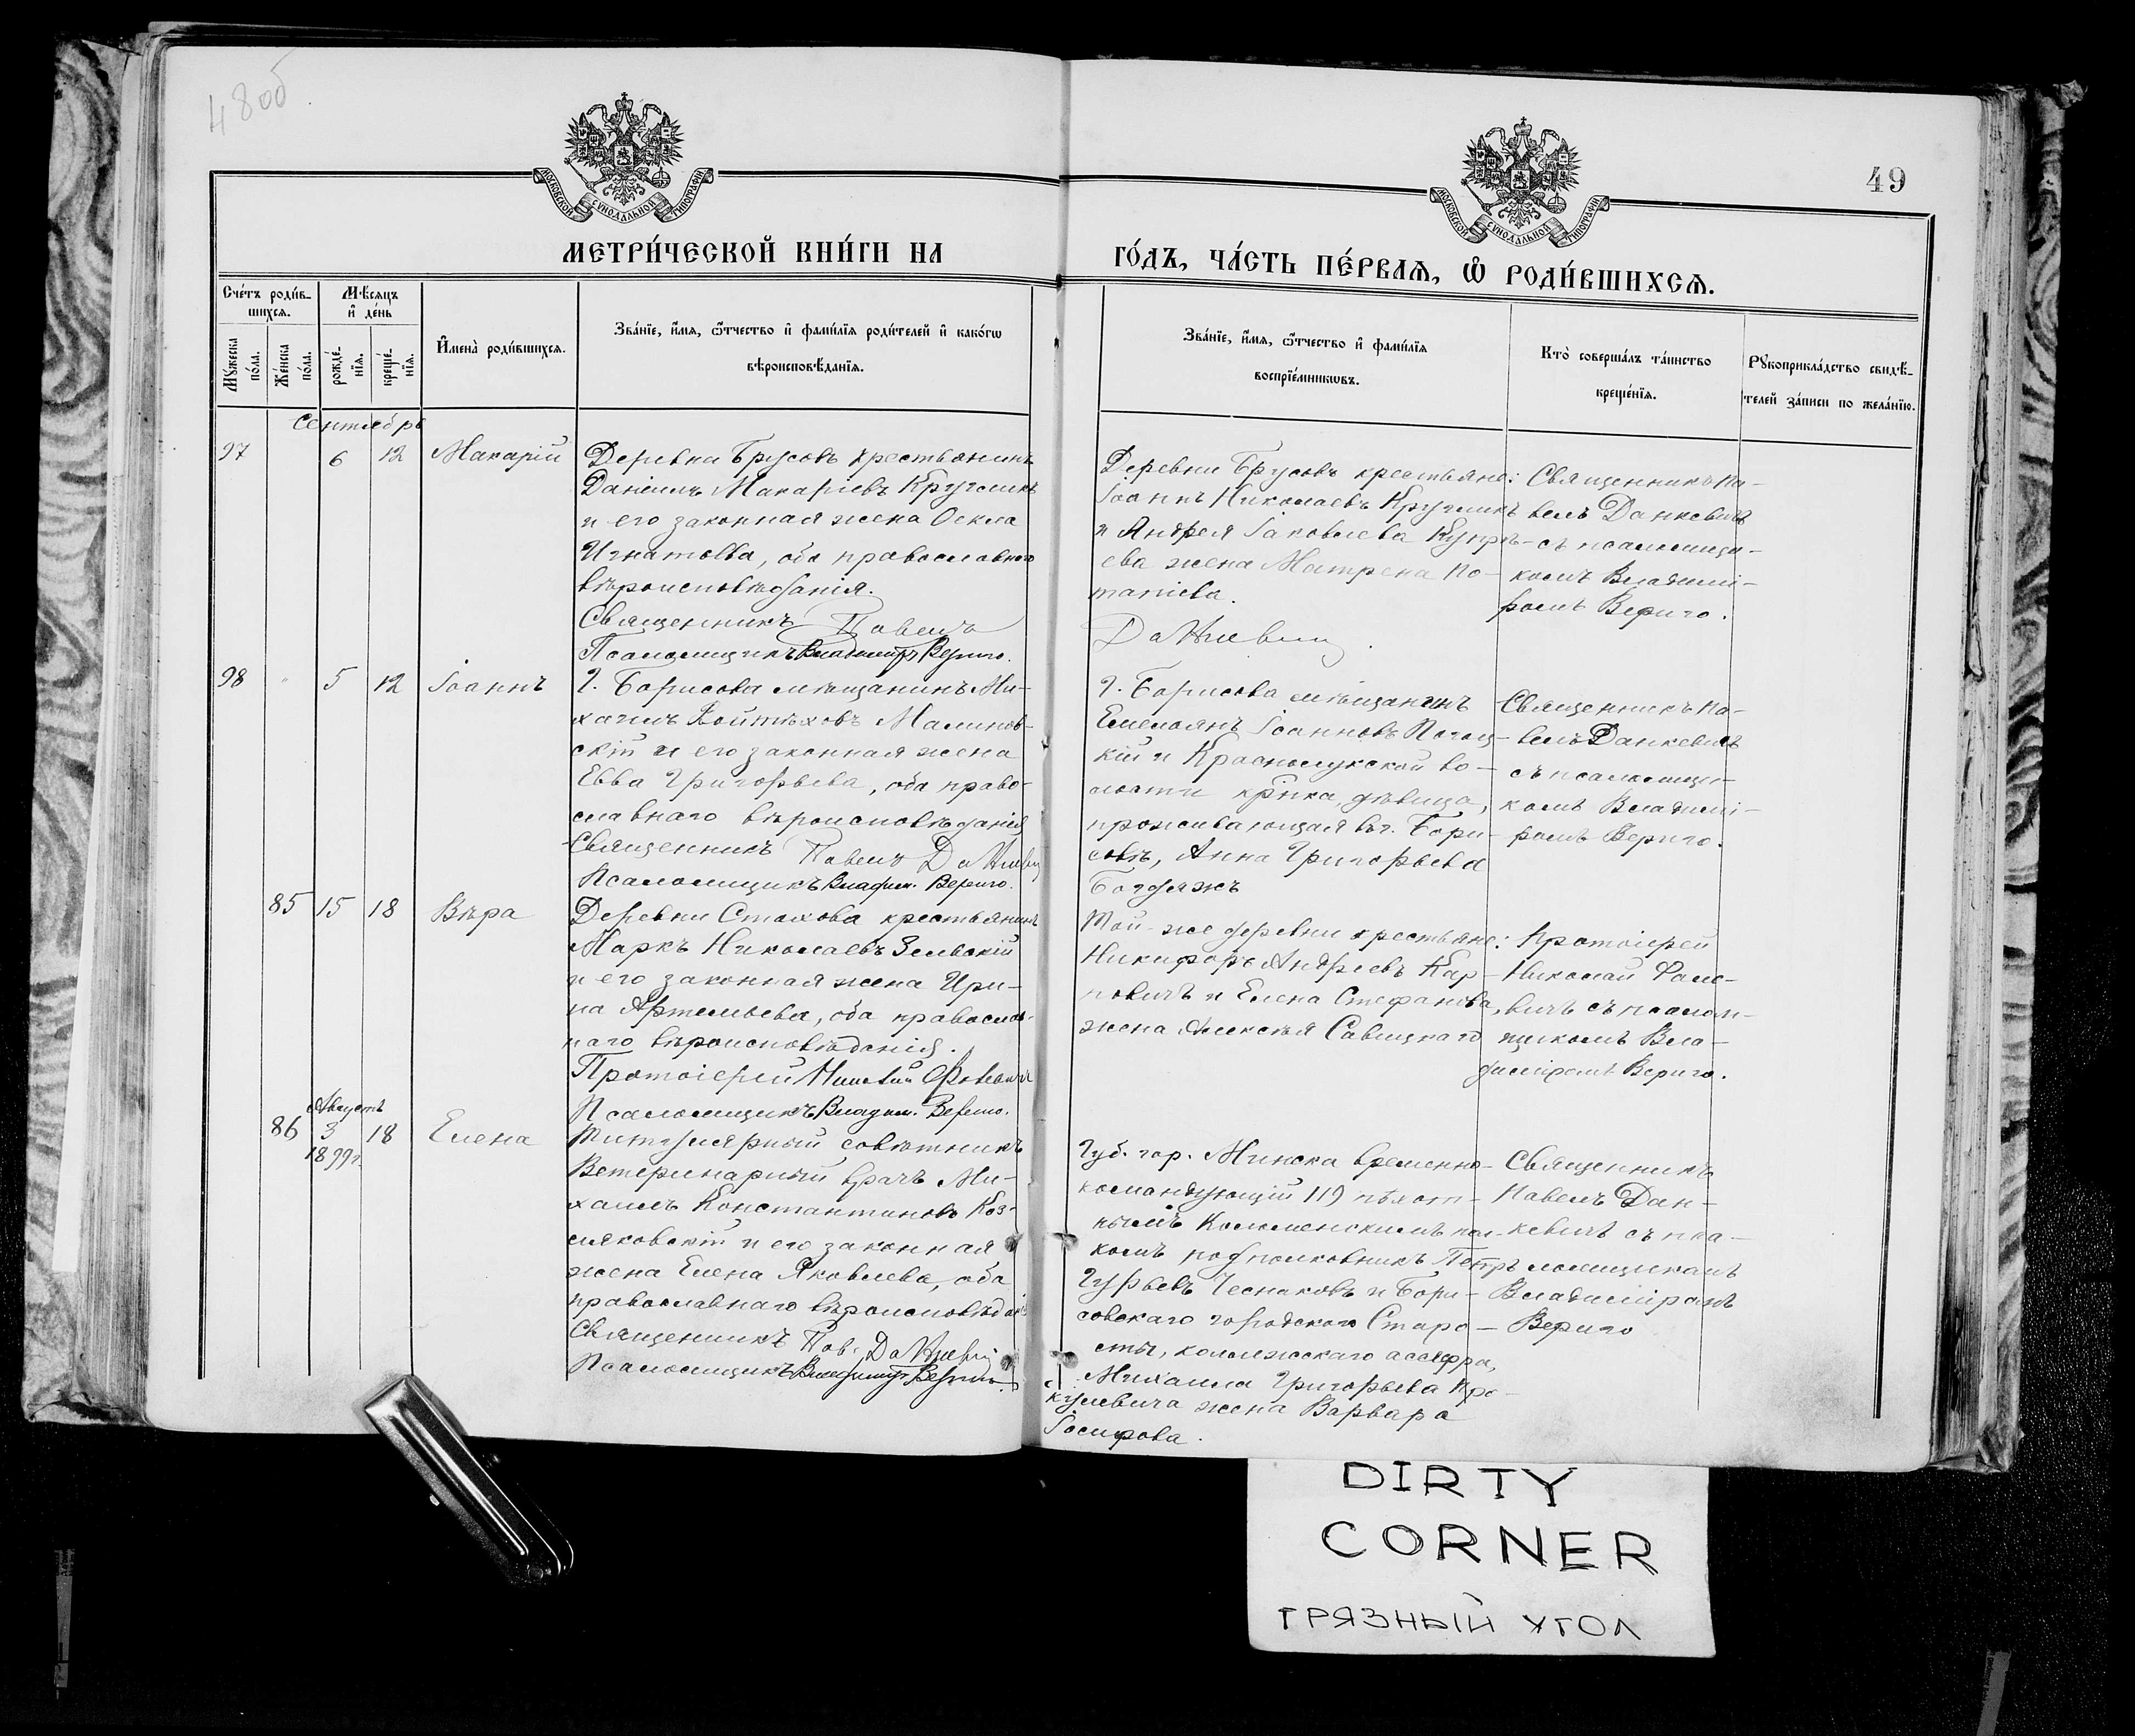 48об.
49
МОСКОВСКОЙ СѴНОДАЛЬНОЙ ТИПОГРАФІИ
МОСКОВСКОЙ СѴНОДАЛЬНОЙ ТИПОГРАФІИ
МЕТРИ́ЧЕСКОЙ КНИ́ГИ НА
ГО́ДЪ, ЧА́СТЬ ПЕ́РВАЯ, Ѡ҆ РОДИ́ВШИХСЯ.
Сче́тъ роди́в-
шихся.
Мѣ́сяцъ
и҆ де́нь
Му́жеска
по́ла.
Же́нска
по́ла.
рожде́-
нїя.
креще́-
нїя.
И҆мена̀ роди́вшихся.
Зва́нїе, и҆́мя, ѻ҆́тчество и҆ фами́лїя роди́телей и҆ како́гѡ
вѣроисповѣ́данїя.
Зва́нїе, и҆́мя, ѻ҆́тчество и҆ фами́лїя
воспрїе́мникѡвъ.
Кто̀ соверша́лъ та́инство
креще́нїя.
Рꙋкоприкла́дство свидѣ́-
телей за́писи по жела́нїю.
Сентябрь
97
6
12
Макарій
Деревни Брусовъ крестьянинъ
Даніилъ Макаріевъ Кругликъ
и его законная жена Ѳекла
Игнатьева, оба православнаго
вѣроисповѣданія.
Священникъ Павелъ
Псаломщикъ Владиміръ Вериго.
Деревни Брусовъ крестьяне:
Іоаннъ Николаевъ Кругликъ
и Андрея Іаковлева Купрѣ-
ева жена Матрена По-
тапіева.
Данкевич
Священникъ Па-
велъ Данкевичъ
съ псаломщи-
комъ Владимі-
ромъ Вериго.
98
5
12
Іоаннъ
Г. Борисова мѣщанинъ Ми-
хаилъ Войтѣховъ Малинов-
скій и его законная жена
Евва Григорьева, оба право-
славнаго вѣроисповѣданія
Священникъ Павелъ Данкевич
Псаломщикъ Владим. Вериго.
Г. Борисова мѣщанинъ
Емельянъ Іоанновъ
кій и Краснолукской во-
лости кр-нка, дѣвица,
проживающая въ г. Бори-
совѣ, Анна Григорьева
Священникъ Па-
велъ Данкевичъ
съ псаломщи-
комъ Владимі-
ромъ Вериго.
85
15
18
Вѣра
Деревни Стахова крестьянинъ
Маркъ Николаевъ Зельскій
и его законная жена Ири-
на Артемьева, оба православ-
наго вѣроисповѣданія.
Протоіерей Николай
Псаломщикъ Владим. Вериго.
Той-же деревни крестьяне:
Никифоръ Андреевъ Кар-
повичъ и Елена Стефанова,
жена Алексѣя Савицкаго
Протоіерей
Николай
вичъ съ псалом-
щикомъ Вла-
диміромъ Вериго.
Августъ
86
3
18
1899 г.
Елена
Титулярный совѣтникъ
Ветеринарный врачъ Ми-
хаилъ Константиновъ Коз-
ляковскій и его законная
жена Елена Яковлева, оба
православнаго вѣроисповѣдан.
Священникъ Пав. Данкевич
Псаломщикъ Владиміръ Вериго.
Губ. гор. Минска временно-
командующій 119 пѣхот-
нымъ Коломенскимъ пол-
комъ подполковникъ Петръ
Гурьевъ Чесноковъ и Бори-
совскаго городского Старо-
сты, коллежскаго асессора,
Михаила Григорьева Про-
кулевича жена Варвара
Іосифова.
Священникъ
Павелъ Дан-
кевичъ съ пса-
ломщикомъ
Владиміромъ
Вериго
DIRTY
CORNER
ГРЯЗНЫЙ УГОЛ